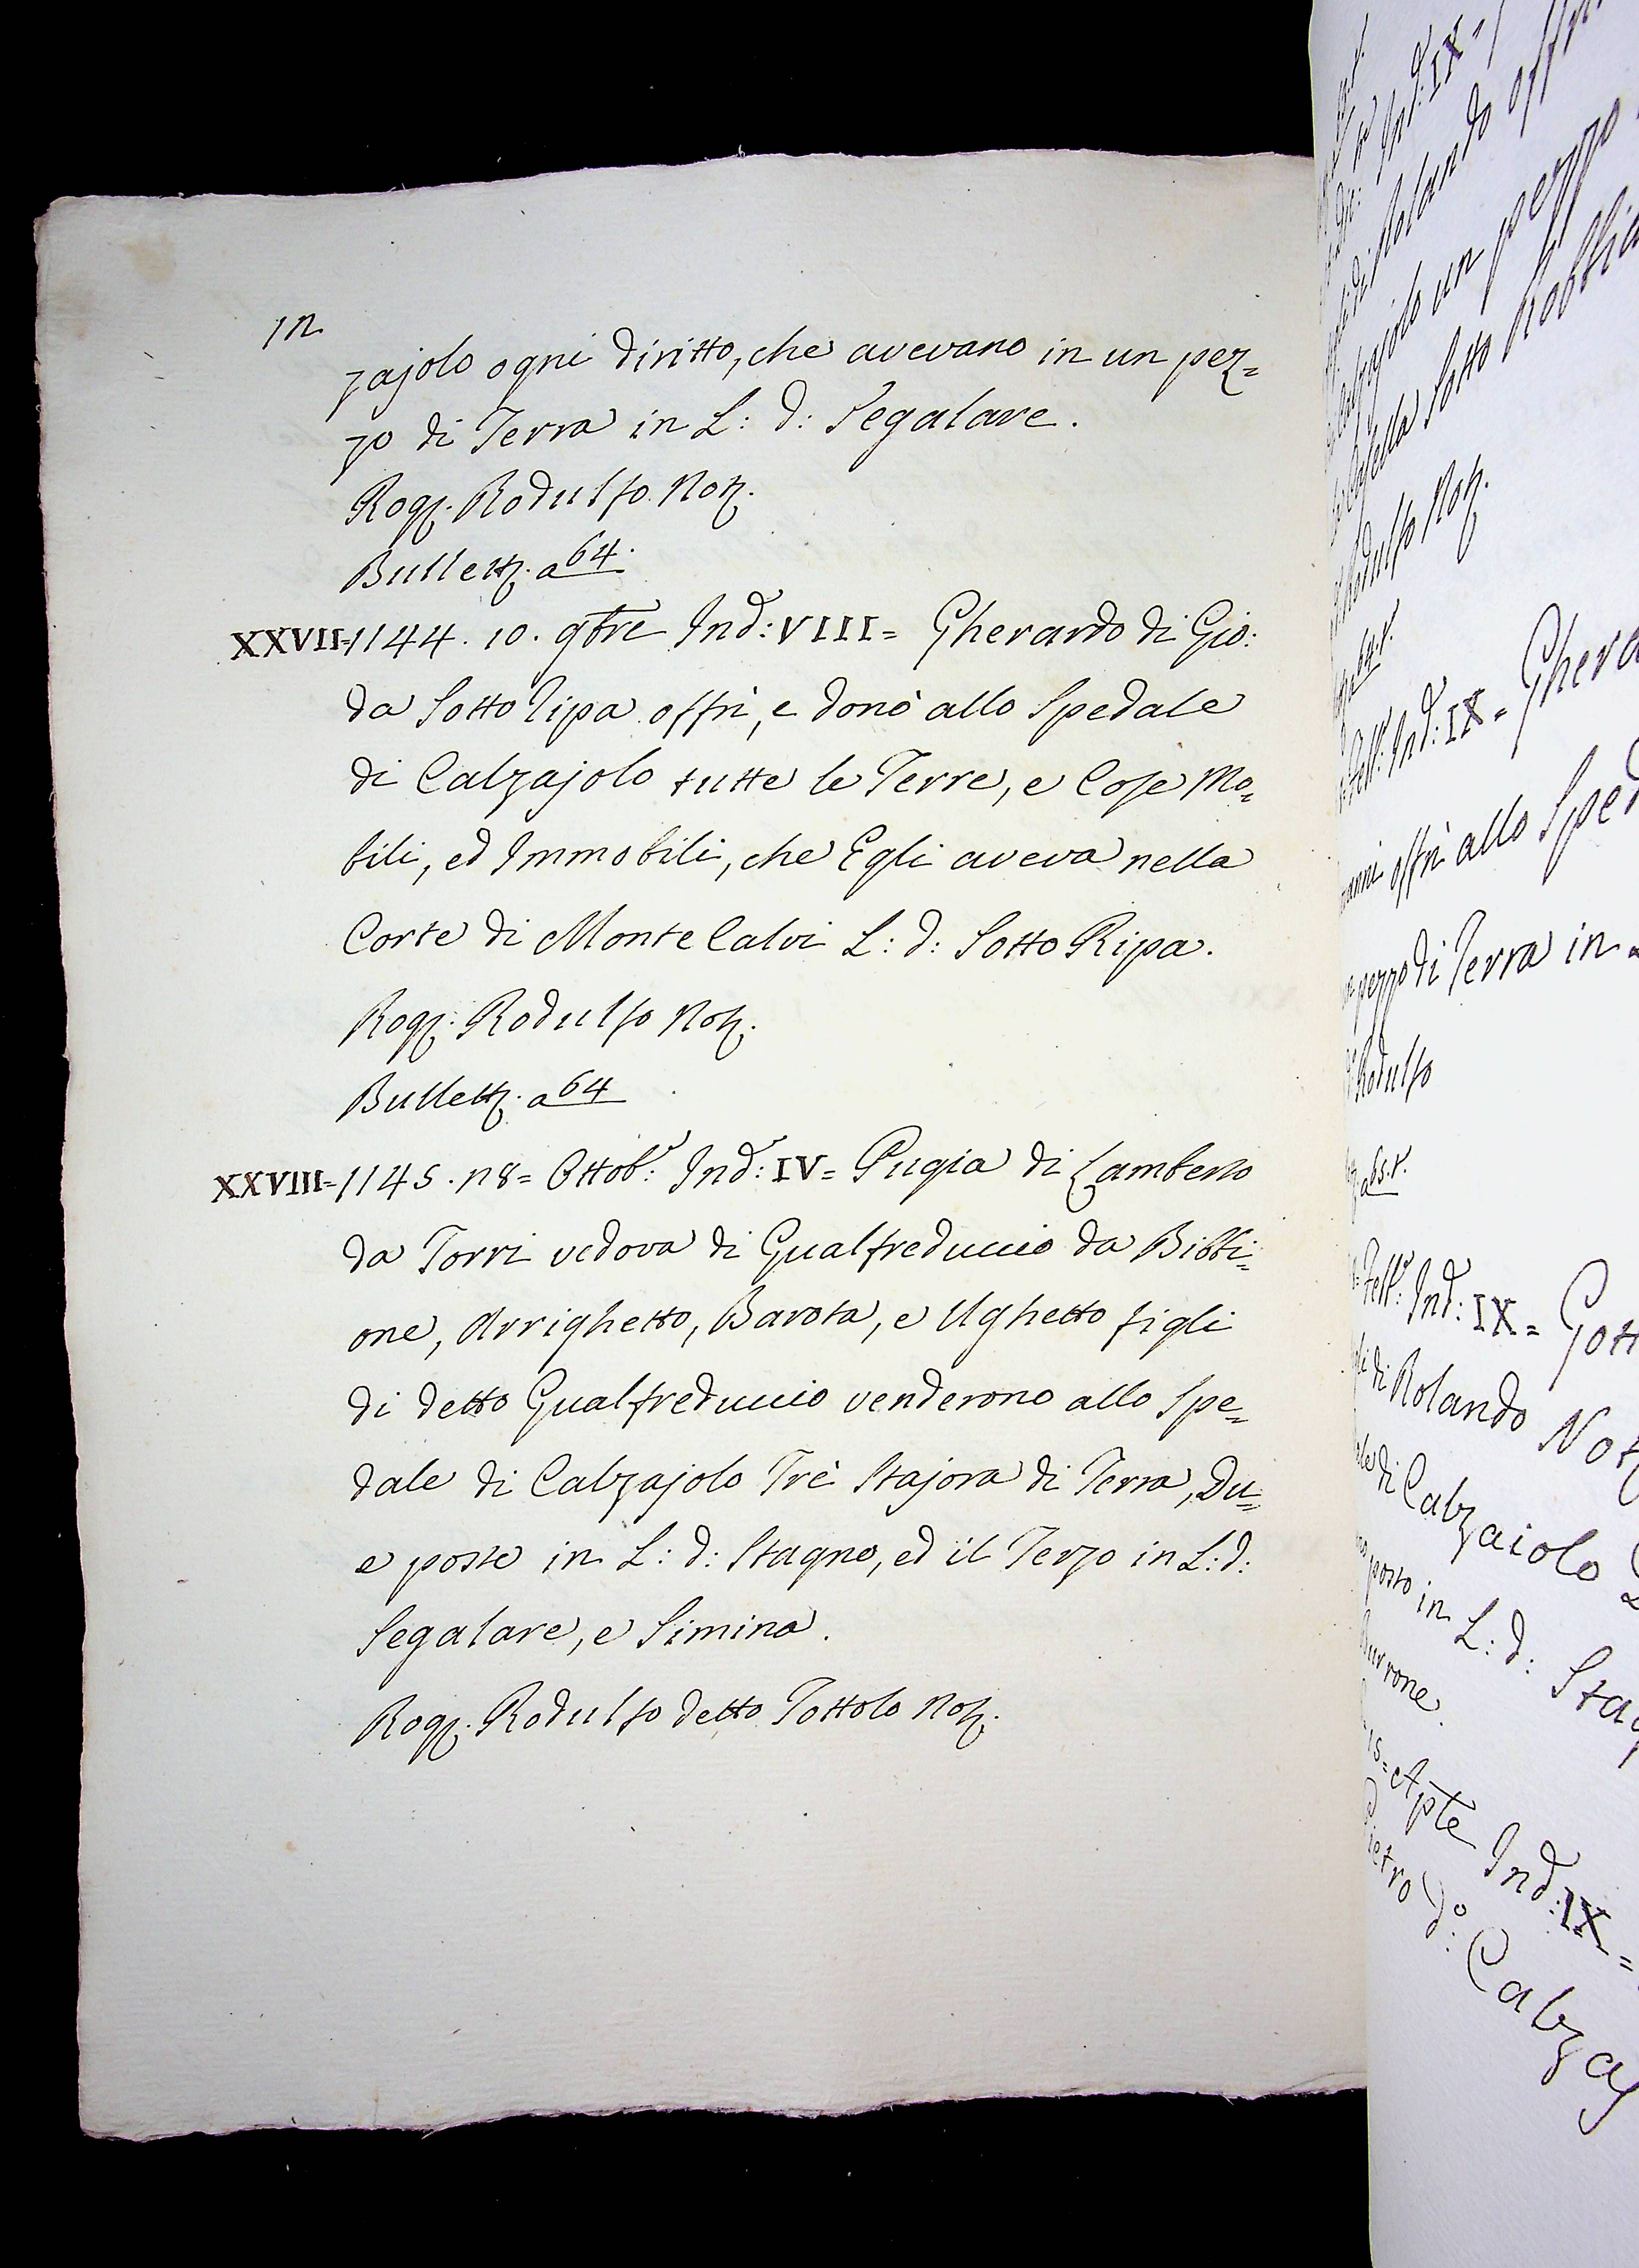 12
zajolo ogni diritto, che avevano in un pez=
zo di Terra in L: d: Segalare.
Rogz. Rodulfo Notz.
Bulletz. a 64.
XXVII=1144. 10. 9bre Ind: VIII= Gherardo di Gio:
da Sotto Ripa offrì, e donò allo Spedale
di Calzajolo tutte le Terre, e Cose Mo=
bili, ed Immobili, che Egli aveva nella
Corte di Monte Calvi L: d: Sotto Ripa.
Rogz: Rodulfo Notz.
Bulletz. a 64
XXVIII=1145. 28= Ottob: Ind: IV= Pugia di Lamberto
da Torri vedova di Gualfreduccio da Bibbi=
one, Arrighetto, Barota, e Ughetto figli
di detto Gualfreduccio venderono allo Spe=
dale di Calzajolo Trè Stajora di Terra, Du=
e poste in L: d: Stagno, ed il Terzo in L: d:
Segalare, e Simina.
Rogz. Rodulfo detto Tottolo Notz.
Ind: IX=
di Rolando
un pezzo
Sotto
Rodulfo Notz.
64.t.
Febb: Ind: IX=
offrì allo
pezzo di Terra in
Rodulfo
65.t.
Febb: Ind: IX=
di Rolando
di Calzaiolo
posto in L: d:
15= Aple Ind: IX=
Pietro do: